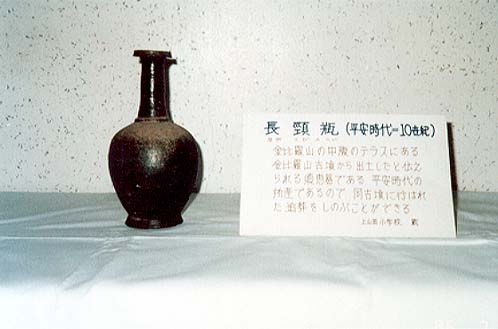 長頸瓶（平安時代=10世紀）
金比羅山の中腹のテラスにある
金比羅山古墳から出土したと伝え
られる須恵器である 平安時代の
物であるので 同古墳に行われ
た追葬をしのぶことができる
小学校 蔵